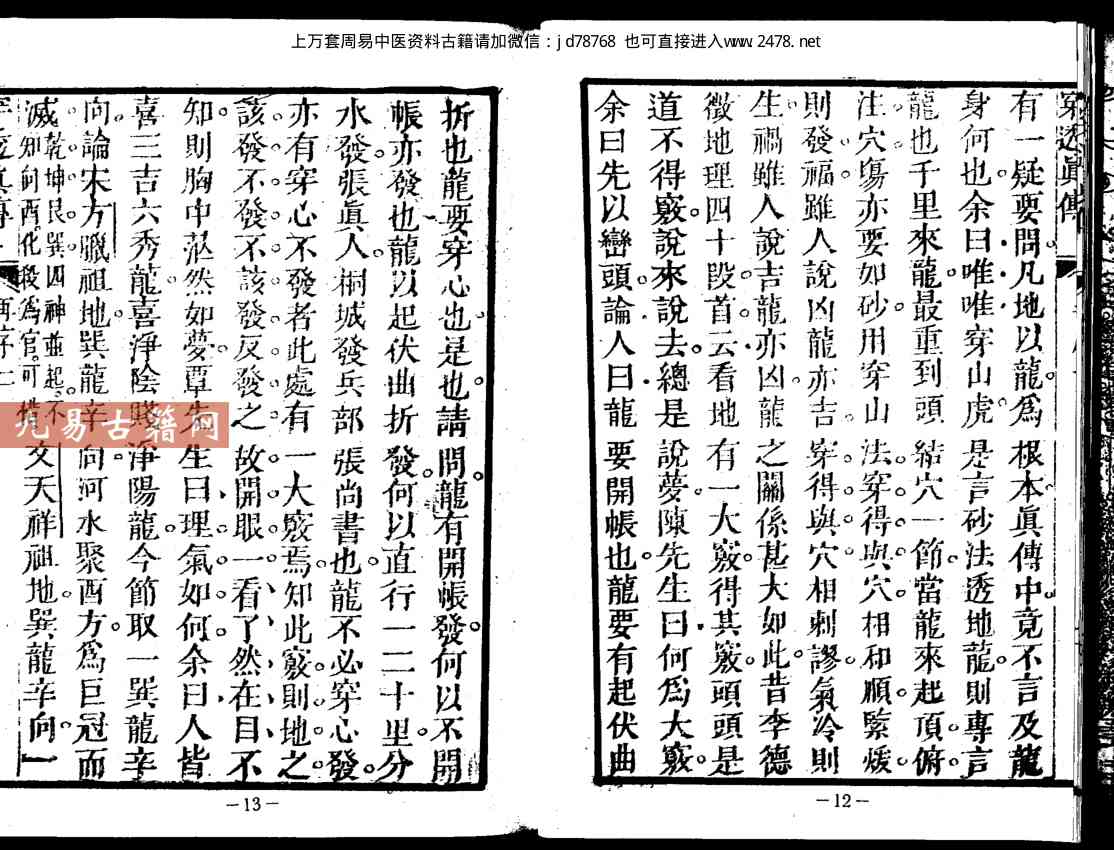 上万套周易中医资料古籍请加微信：jd78768 也可直接进入www.2478.net
穿透眞傳
有一疑要問凡地以龍爲根本眞傳中竟不言及龍
身何也余曰唯唯穿山虎是言砂法透地龍則專言
龍也千里來龍最重到頭結穴一節當龍來起頂俯
注穴塲亦要如砂用穿山法穿得與穴相和順緊煖
則發福雖人說凶龍亦吉穿得與穴相刺謬氣冷則
生禍雖人說吉龍亦凶龍之關係甚大如此昔李德
徵地理四十段首云看地有一大竅得其竅頭頭是
道不得竅說來說去總是說夢陳先生曰何爲大竅
余曰先以巒頭論人曰龍要開帳也龍要有起伏曲
折也龍要穿心也是也請問龍有開帳發何以不開
帳亦發也龍以起伏曲折發何以直行一二十里分
水發張眞人桐城發兵部張尚書也龍不必穿心發
亦有穿心不發者此處有一大竅焉知此竅則地之
該發不發不該發反發之故開眼一看了然在目不
知則胸中茫然如夢覃先生曰理氣如何余曰人皆
喜三吉六秀龍喜淨陰賤淨陽龍今節取一巽龍辛
向論宋方臘祖地巽龍辛向河水聚酉方爲巨冦而
滅乾坤艮巽四神並起不知向酉化殺爲官可惜文天祥祖地巽龍辛向一
—12—
—13—
九易古籍网